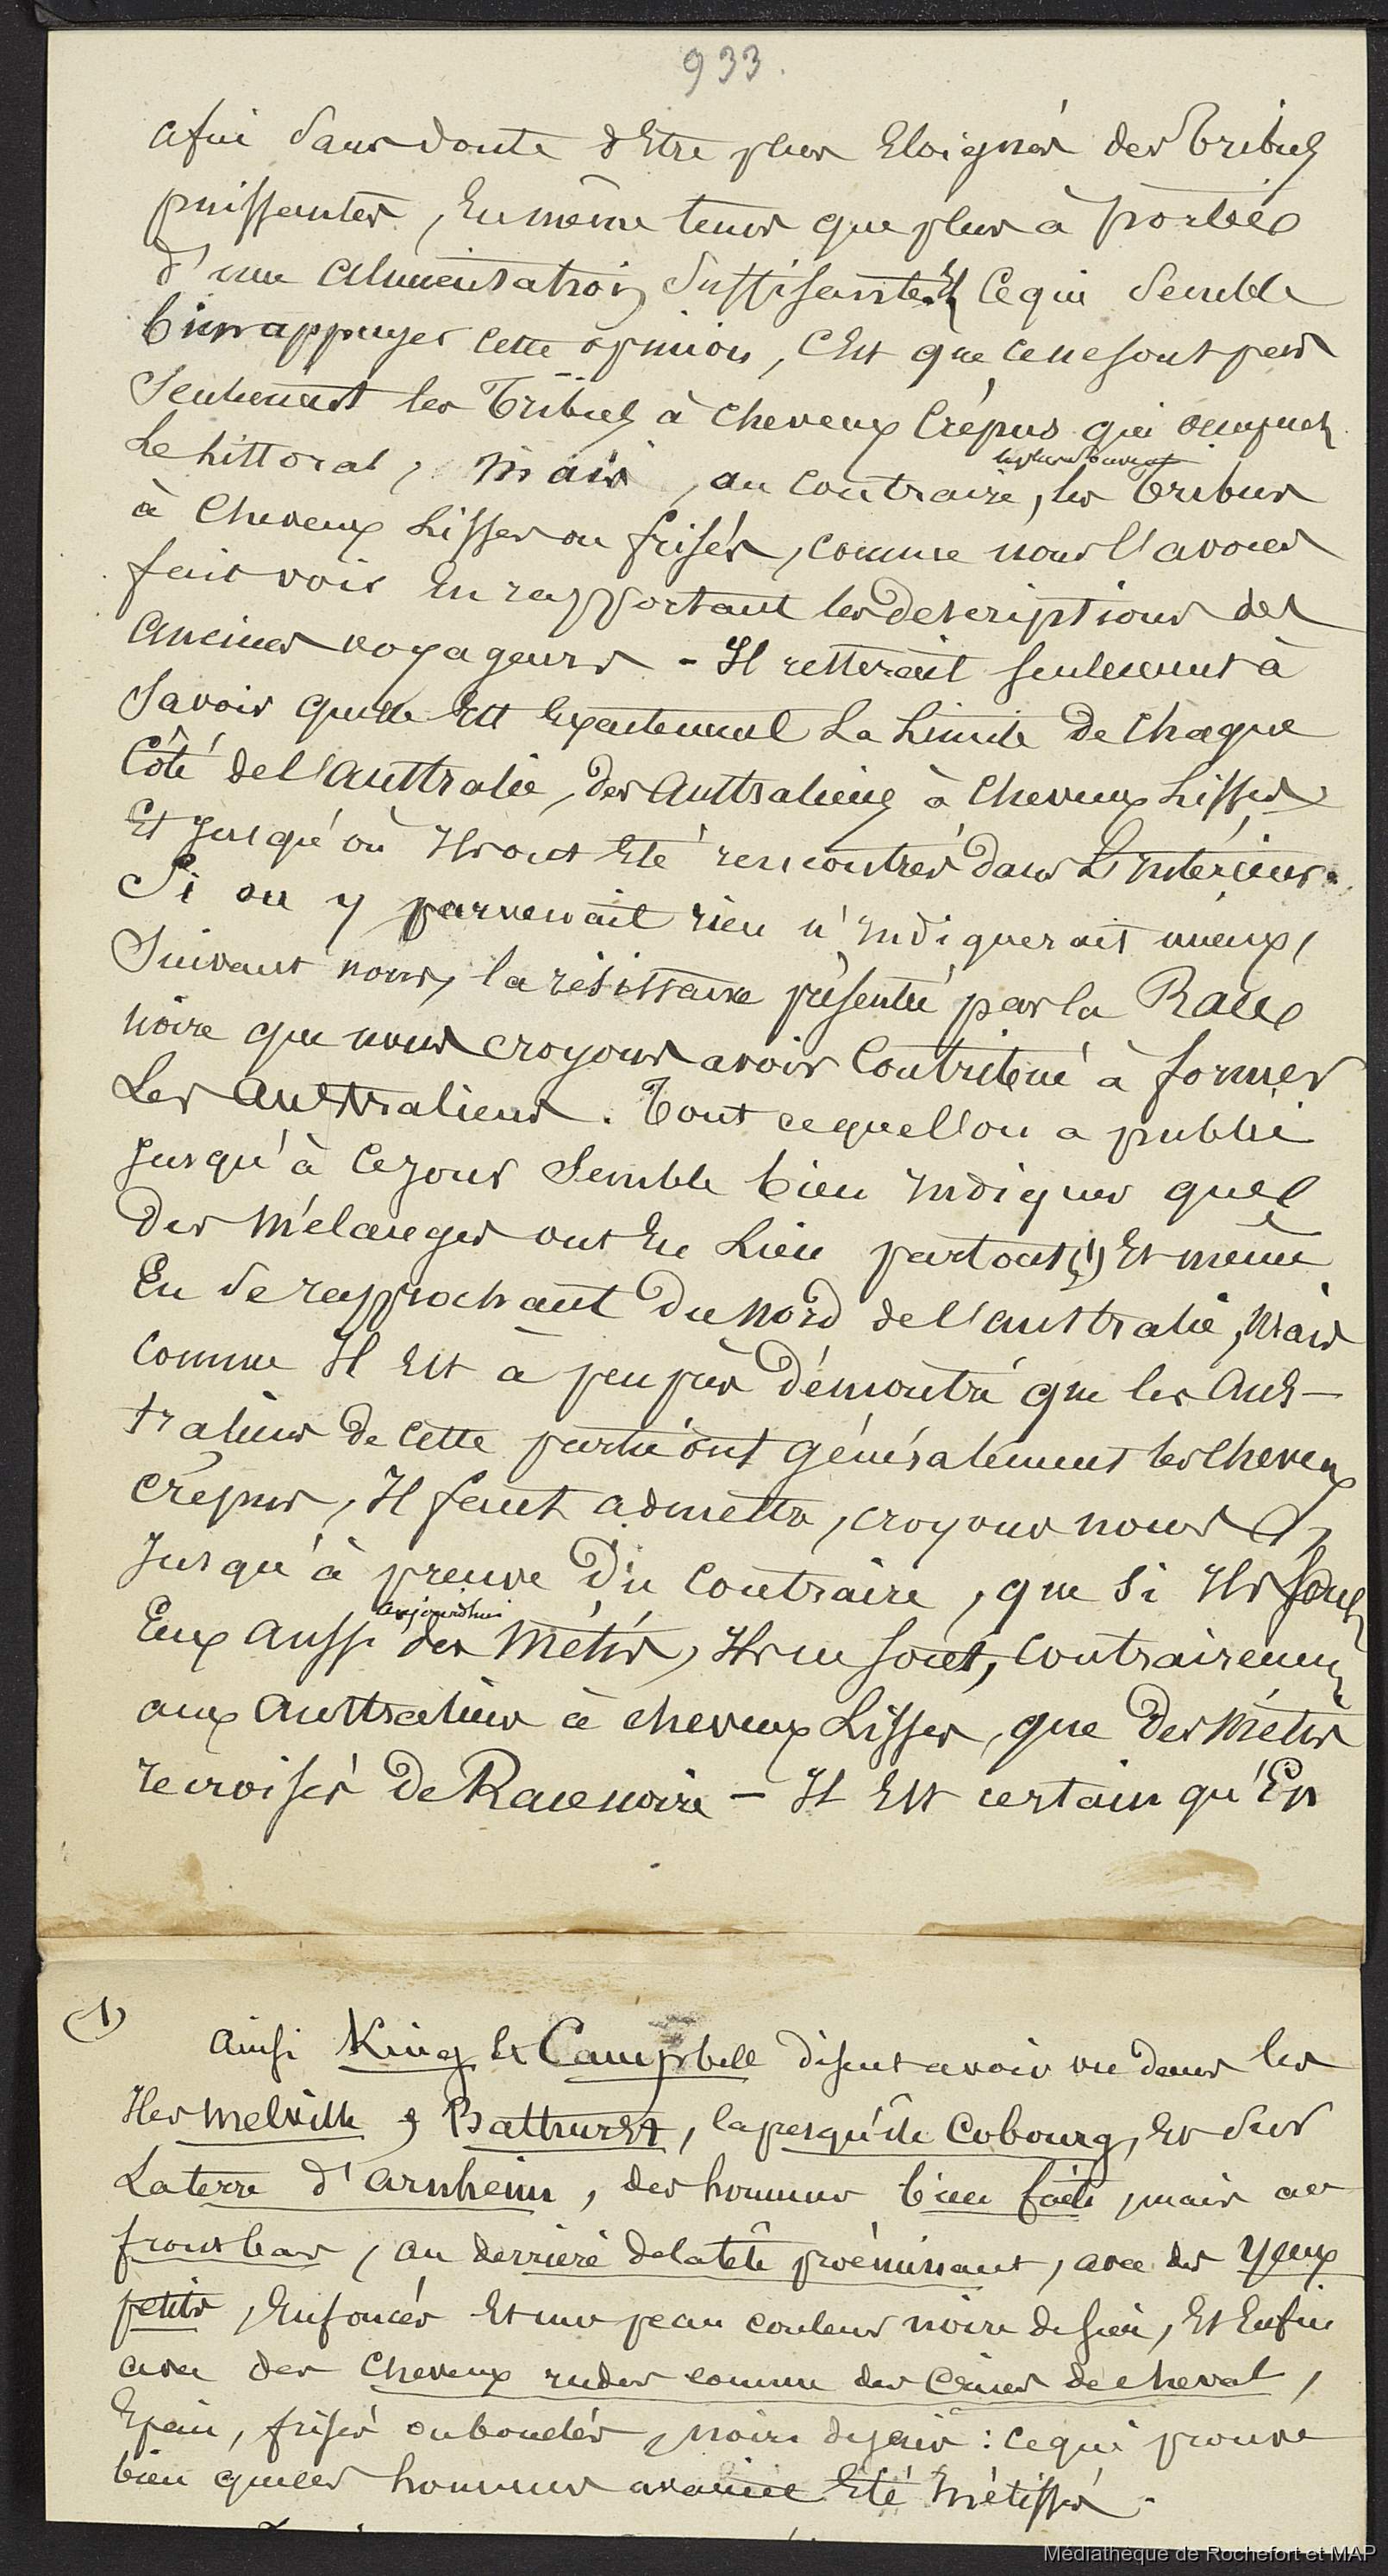 933.
afin sans doute d'Etre plus Eloignés des Tribus
puissantes, En même tems que plus à portée
d'une alimentation Suffisante. Et Ce qui Semble
bien appuyer cette opinion, C'Est que ce ne sont pas
Seulement les Tribus à Cheveux Crépus qui occupent
Le Littoral, Mais, au Contraire, les plus souvent les Tribus
à Cheveux Lisses ou frisés, comme nous l'avons
fait voir En rapportant les descriptions des
anciens voyageurs - Il resterait seulement à
Savoir quelle Est Exactement La Limite De Chaque
Côté de l'australie, des australiens à Cheveux Lisses
Et Jusqu'où Ils ont Eté rencontrés dans L'Intérieur.
Si on y parvenait rien n'Indiquerait mieux,
Suivant nous, la résistance présentée par la Race
noire que nous croyons avoir Contribué à former
Les australiens. Tout ce que l'on a publié
Jusqu'à Ce jour Semble bien Indiquer que
Des Mélanges ont Eu Lieu partout (1) Et même
En Se rapprochant Du Nord de l'australie, Mais
comme Il Est à peu près Démontré que les Aus-
traliens de Cette partie ont généralement les cheveux
crépus, Il faut admettre, croyons nous,
Jusqu'à preuve Du Contraire, que Si Ils sont
Eux aussi aujourd'hui des Métis, Ils ne sont, Contrairement
aux australiens à cheveux Lisses, que Des Métis
recroisés De Race noire - Il Est certain qu'En
(1) Ainsi King Et Campbell disent avoir vu dans les
Iles Melville & Bathurst, la presqu'île Cobourg, Et Sur
La terre d'Arnheim, des hommes bien faits, mais au
front bas, au derrière de la tête proéminant, avec des yeux
petits, Enfoncés Et une peau couleur noire de suie, Et Enfin
avec des cheveux rudes comme des Crins de cheval,
Epais, frisés ou bouclés, noirs de jais : ce qui prouve
bien que ces hommes avaient Eté métissés.
Médiathèque de Rochefort et MAP